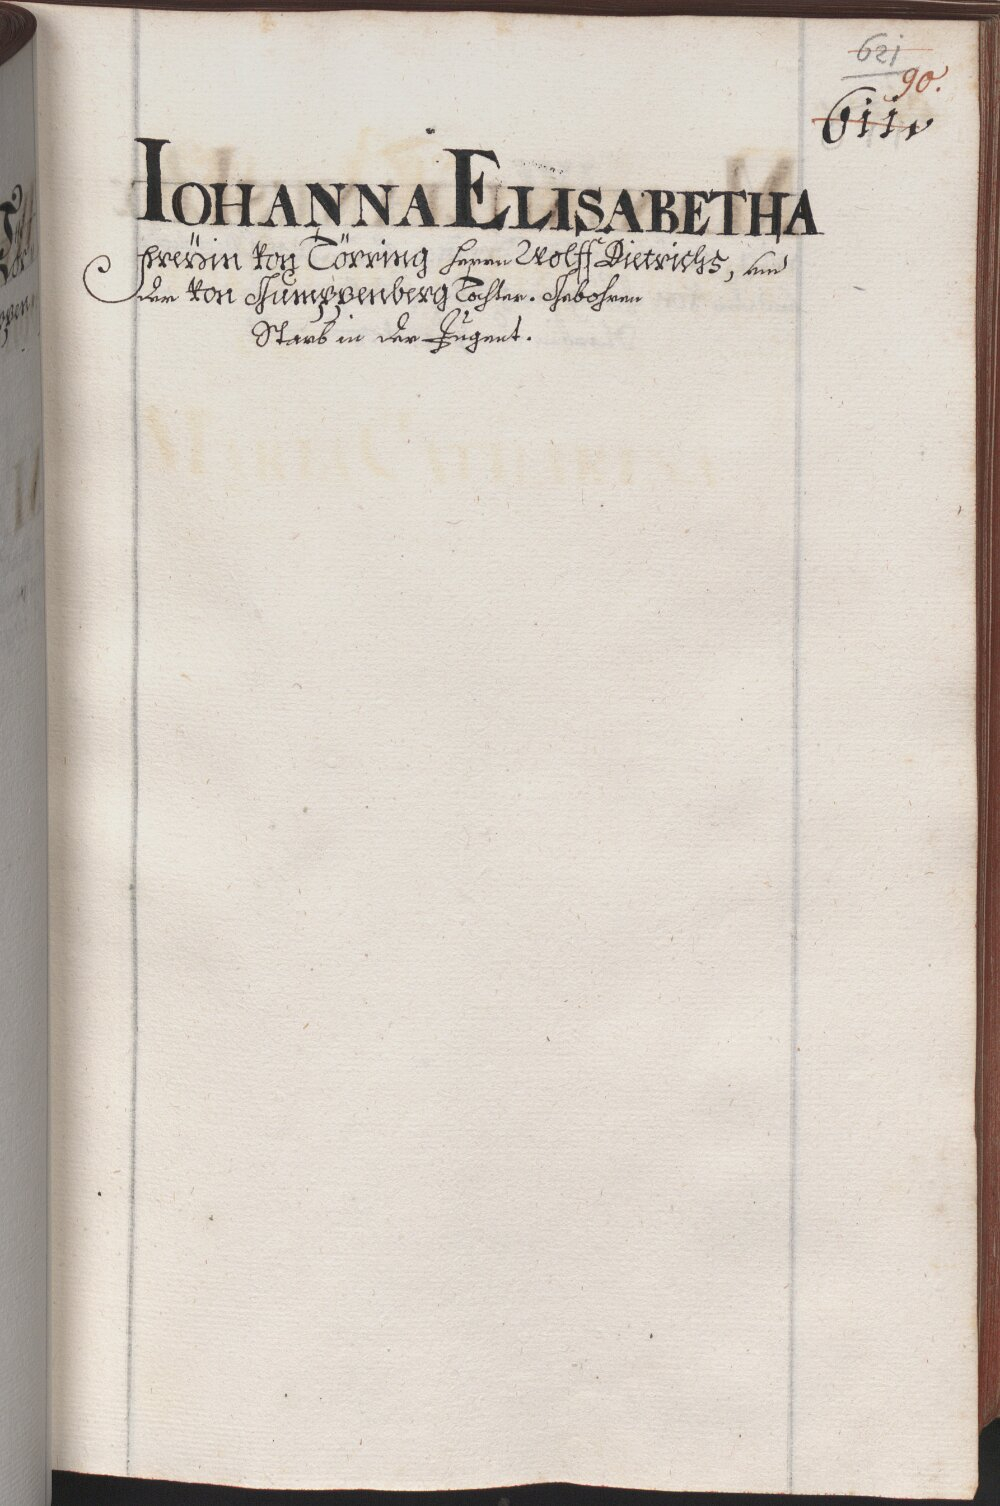 621
90.
611.
IOHANNA ELISABETHA
Freÿin von Törring Herrn Wolff Dietrichs, und
der von Gumppenberg Tochter. Gebohren
Starb in der Jugent.